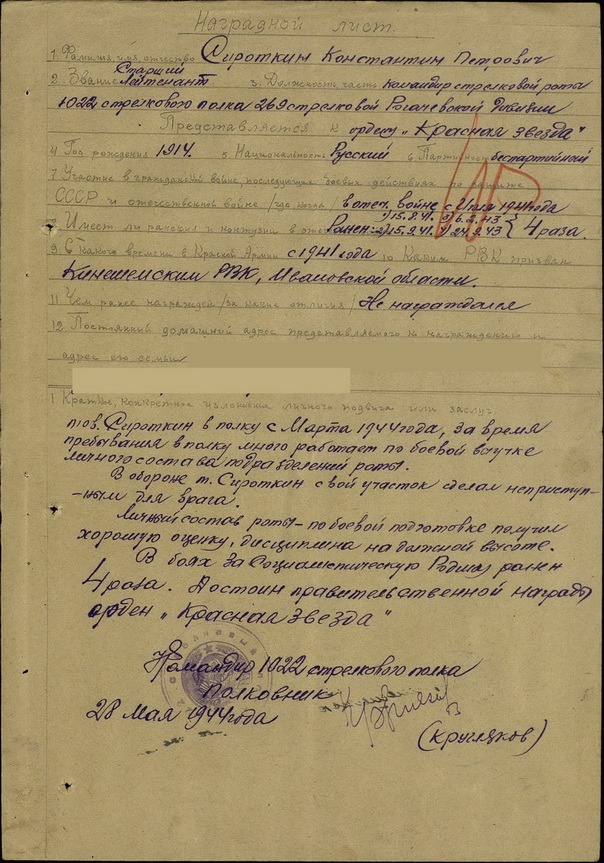 Наградной лист.
1. Фамилия, имя, отчество Сироткин Константин Петрович
2. Звание Старший Лейтенант 3. Должность, часть Командир стрелковой роты
1022 стрелкового полка 269 стрелковой Рогачевской Дивизии
Представляется к ордену „Красная звезда"
4. Год рождения 1914. 5. Национальность Русский 6. Партийность беспартийный
7. Участие в гражданской войне, последующих боевых действиях по защите
СССР и отечественной войне /где, когда/ в отеч. войне с 1941 года
Имеет ли ранения и контузии в отеч Ранен: 1) 15.8.41. 2) 15.9.41. 3) 6.2.43 4) 24.9.43 } 4 раза.
9. С какого времени в Красной Армии с 1941 года 10 Каким РВК призван
Кинешемским РВК, Ивановской области.
11. Чем ранее награжден /за какие отличия/ Не награждался
12. Постоянный домашний адрес представляемого к награждению и
адрес его семьи
1. Краткое, конкретное изложение личного подвига или заслуг
тов. Сироткин в полку с Марта 1944 года, за время
пребывания в полку много работает по боевой выучке
личного состава подразделений роты.
В обороне т. Сироткин свой участок сделал неприступ-
-ным для врага.
Личный состав роты – по боевой подготовке получил
хорошую оценку, дисциплина на должной высоте.
В боях за Социалистическую Родину ранен
4 раза. Достоин правительственной награды
орден „Красная звезда"
Командир 1022 стрелкового полка
Полковник
28 Мая 1944 года
(Кругляков)